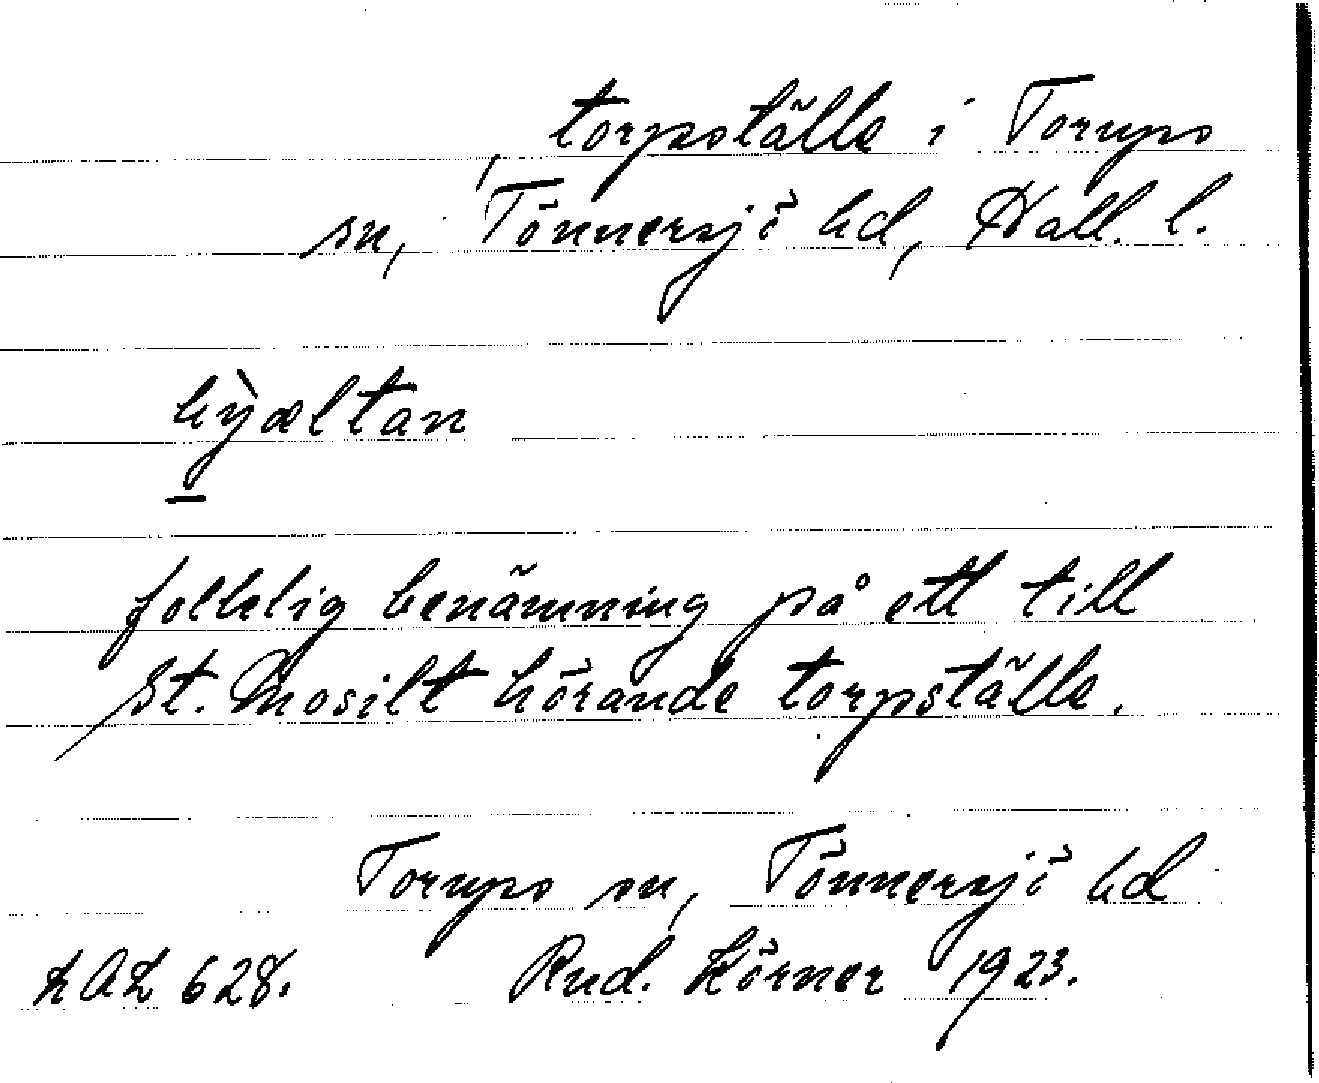 , torpställe i Torups
sn, Tönnersjö hd, Hall. l.
hỳæltan
folklig benämning på ett till
St. Mosilt hörande torpställe.
Torups sn, Tönnersjö hd
LAL 628. Rud. Körner 1923.